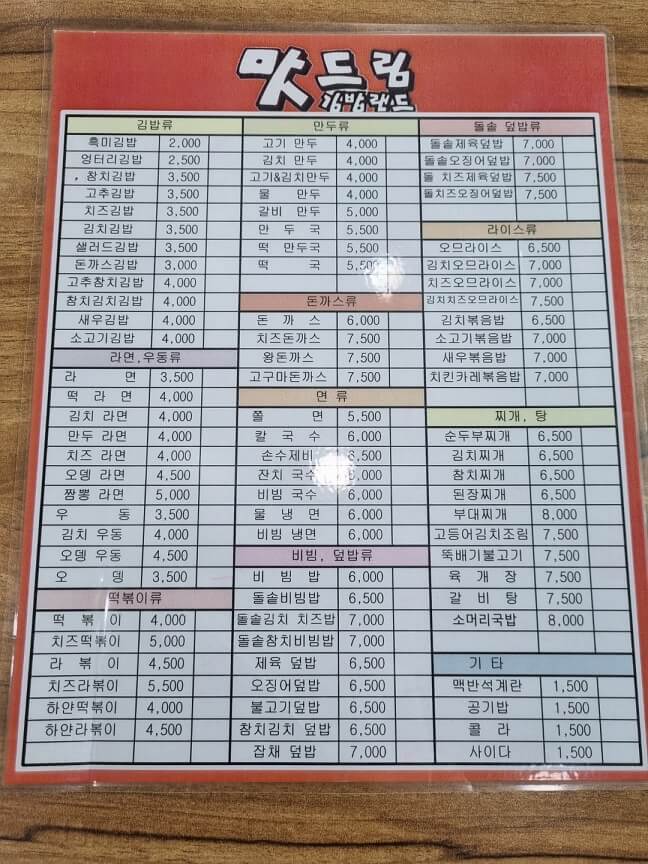 맛드림
김밥랜드
김밥류
흑미김밥 2,000
엉터리김밥 2,500
참치김밥 3,500
고추김밥 3,500
치즈김밥 3,500
김치김밥 3,500
샐러드김밥 3,500
돈까스김밥 3,000
고추참치김밥 4,000
참치김치김밥 4,000
새우김밥 4,000
소고기김밥 4,000
라면,우동류
라 면 3,500
떡 라면 4,000
김치 라면 4,000
만두 라면 4,000
치즈 라면 4,000
오뎅 라면 4,500
짬뽕 라면 5,000
우 동 3,500
김치 우동 4,000
오뎅 우동 4,500
오 뎅 3,500
떡볶이류
떡 볶 이 4,000
치즈떡볶이 5,000
라 볶 이 4,500
치즈라볶이 5,500
하얀떡볶이 4,000
하얀라볶이 4,500
만두류
고기 만두 4,000
김치 만두 4,000
고기&김치만두 4,000
물 만두 4,000
갈비 만두 5,000
만 두 국 5,500
떡 만두국 5,500
떡 국 5,500
돈까스류
돈 까 스 6,000
치즈돈까스 7,500
왕돈까스 7,500
고구마돈까스 7,500
면 류
쫄 면 5,500
칼 국 수 6,000
손수제비 6,500
잔치 국수 6,000
비빔 국수 6,000
물 냉 면 6,000
비빔 냉면 6,000
비빔, 덮밥류
비 빔 밥 6,000
돌솥비빔밥 6,500
돌솥김치 치즈밥 7,000
돌솥참치비빔밥 7,000
제육 덮밥 6,500
오징어덮밥 6,500
불고기덮밥 6,500
참치김치 덮밥 6,500
잡채 덮밥 7,000
돌솥 덮밥류
돌솥제육덮밥 7,000
돌솥오징어덮밥 7,000
돌 치즈제육덮밥 7,500
돌치즈오징어덮밥 7,500
라이스류
오므라이스 6,500
김치오므라이스 7,000
치즈오므라이스 7,000
김치치즈오므라이스 7,500
김치볶음밥 6,500
소고기볶음밥 7,000
새우볶음밥 7,000
치킨카레볶음밥 7,000
찌개, 탕
순두부찌개 6,500
김치찌개 6,500
참치찌개 6,500
된장찌개 6,500
부대찌개 8,000
고등어김치조림 7,500
뚝배기불고기 7,500
육 개 장 7,500
갈 비 탕 7,500
소머리국밥 8,000
기 타
맥반석계란 1,500
공기밥 1,500
콜 라 1,500
사이다 1,500